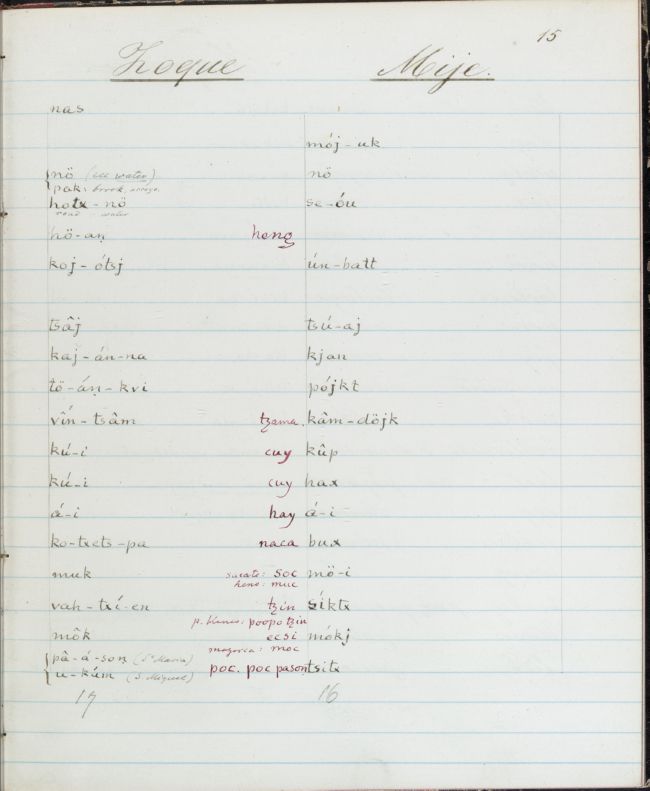 15
Zoque Mije.
nas
mój-uk
nö (see water) nö
pak: brook, arroyo.
hotx-nö se-óu
road water
hö-aṇ heng
koj-ótsj ún-batt
tsâj tsú-aj
kaj-án-na kjan
tö-áṇ-kvi pójkt
vîń-tsâm tzama. kâm-döjk
kú-i cuy kûp
kú-i cuy hax
á-i hay á-i
ko-txets-pa naca bux
muk sacate: soc mö-i
heno: muc
vah-txí-en tzin síktx
p. blanco: poopotzin
môk ecsi mókj
mazorca: moc
pâ-á-soṇ (Sta Maria) poc. poc pason tsitx
u-kúm (S. Miguel)
17 16